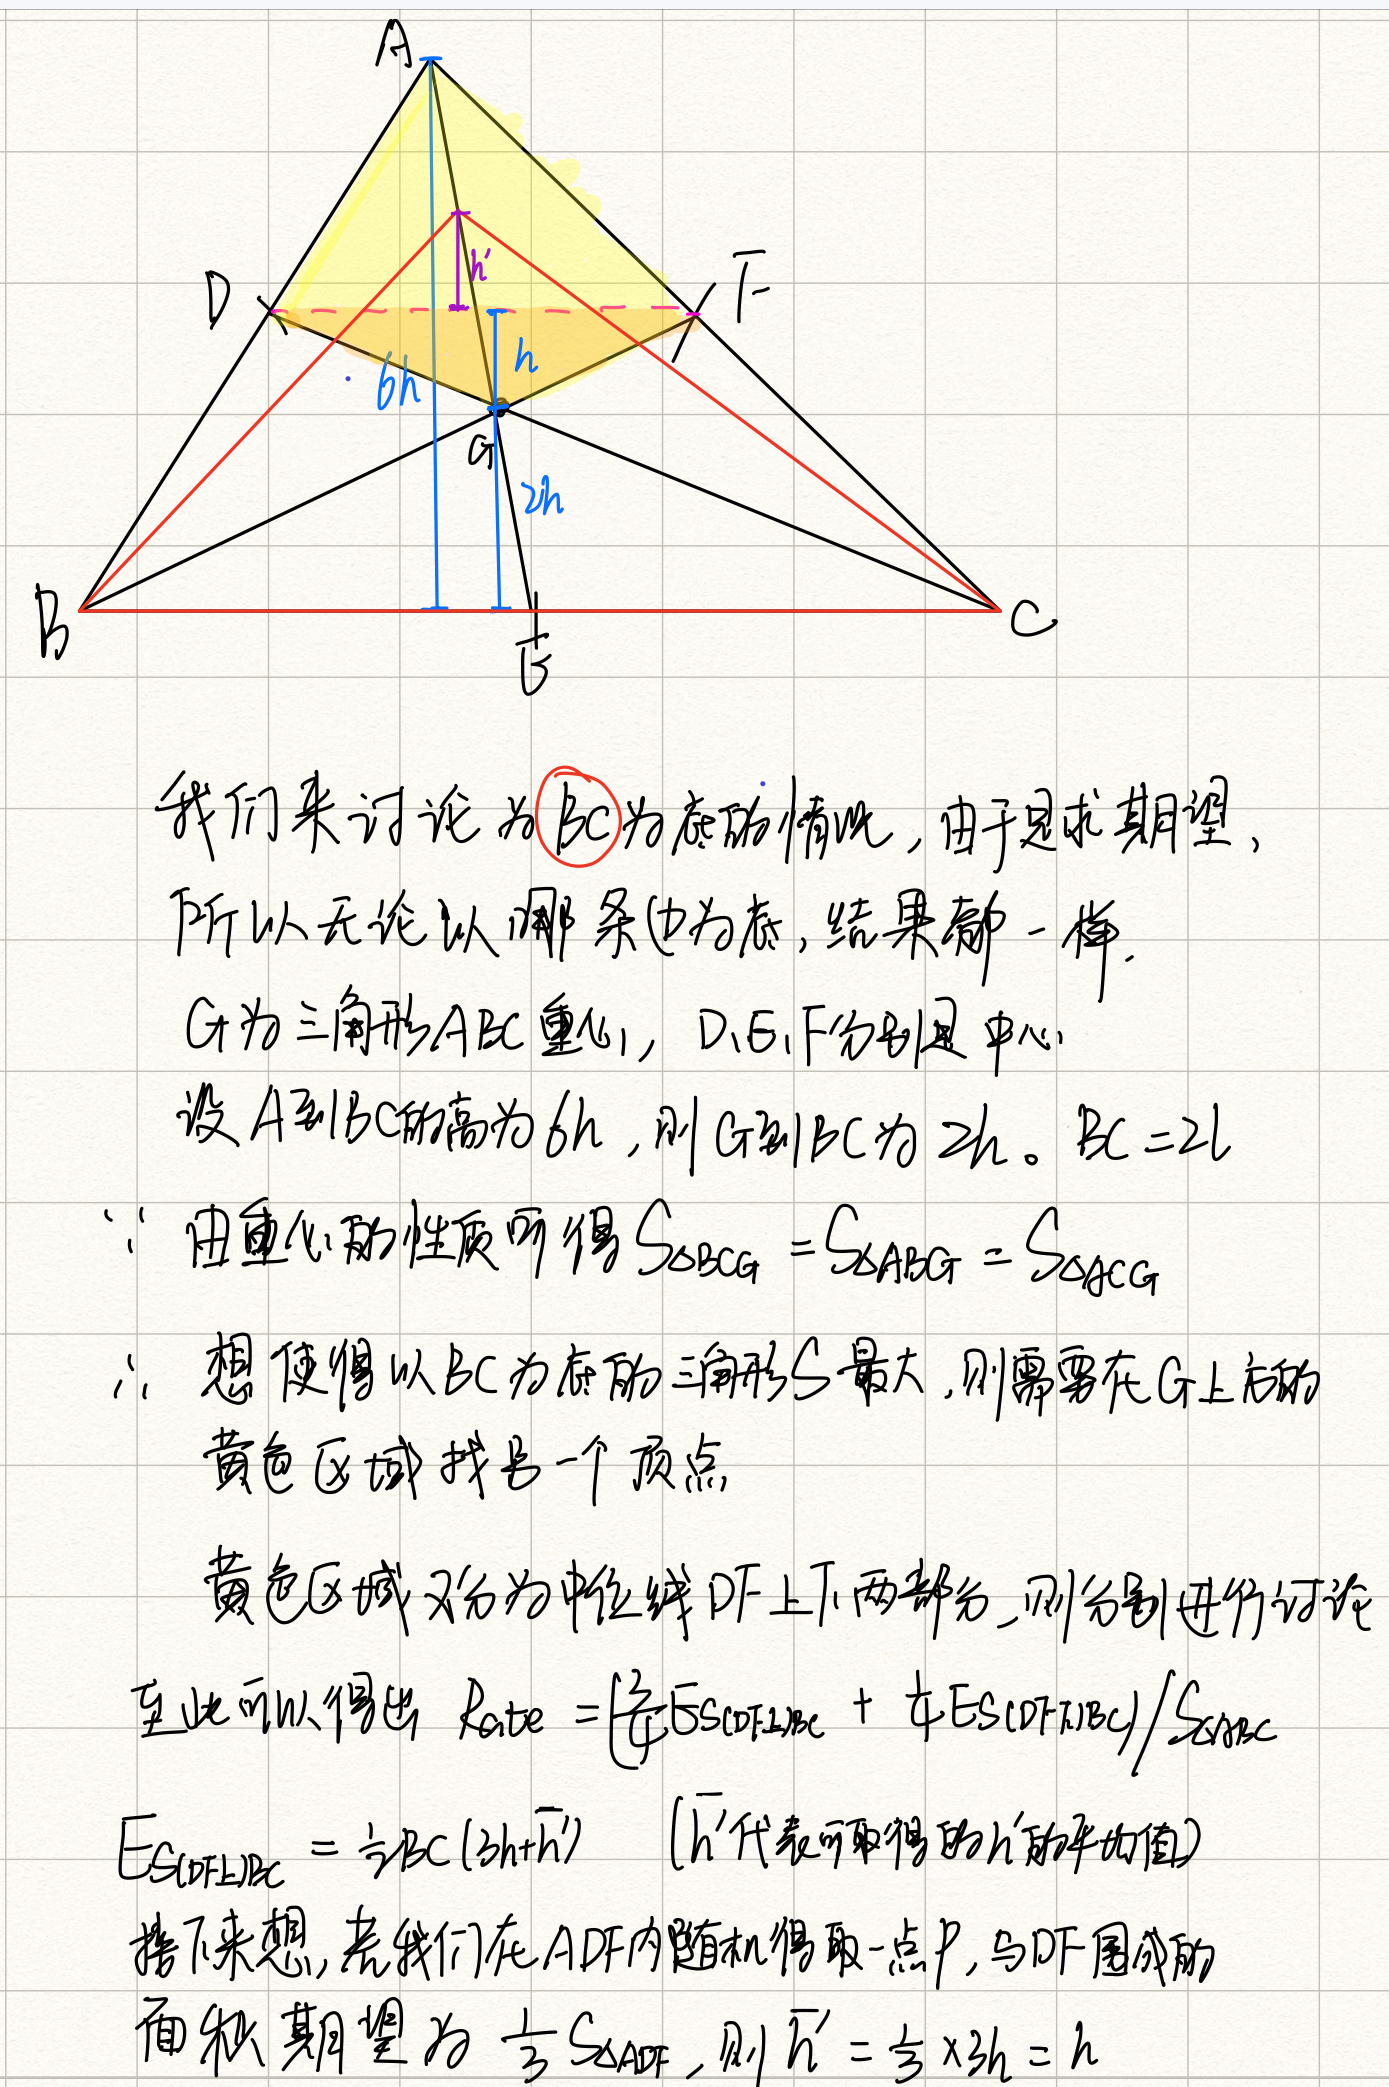 A
D
F
h'
h
6h
G
2h
B
E
C
我们来讨论为BC为底的情况,由于是求期望,
所以无论以哪条边为底,结果都一样.
G为三角形ABC重心,D、E、F分别是中心
设A到BC的高为6h,则G到BC为2h。BC=2l
∵ 由重心的性质可得S△BCG=S△ABG=S△ACG
∴ 想使得以BC为底的三角形S最大,则需要在G上方的
黄色区域找另一个顶点
黄色区域又分为中位线DF上下两部分,则分别进行讨论
至此可以得出 Rate=(3/4 ES(DF上)BC + 1/4 ES(DF下)BC)/S△ABC
ES(DF上)BC = 1/2 BC(3h+h̄') (h̄'代表可取得的h'的平均值)
接下来想,若我们在ADF内随机得取一点P,与DF围成的
面积期望为 1/3 S△ADF,则 h̄' = 1/3 ×3h = h